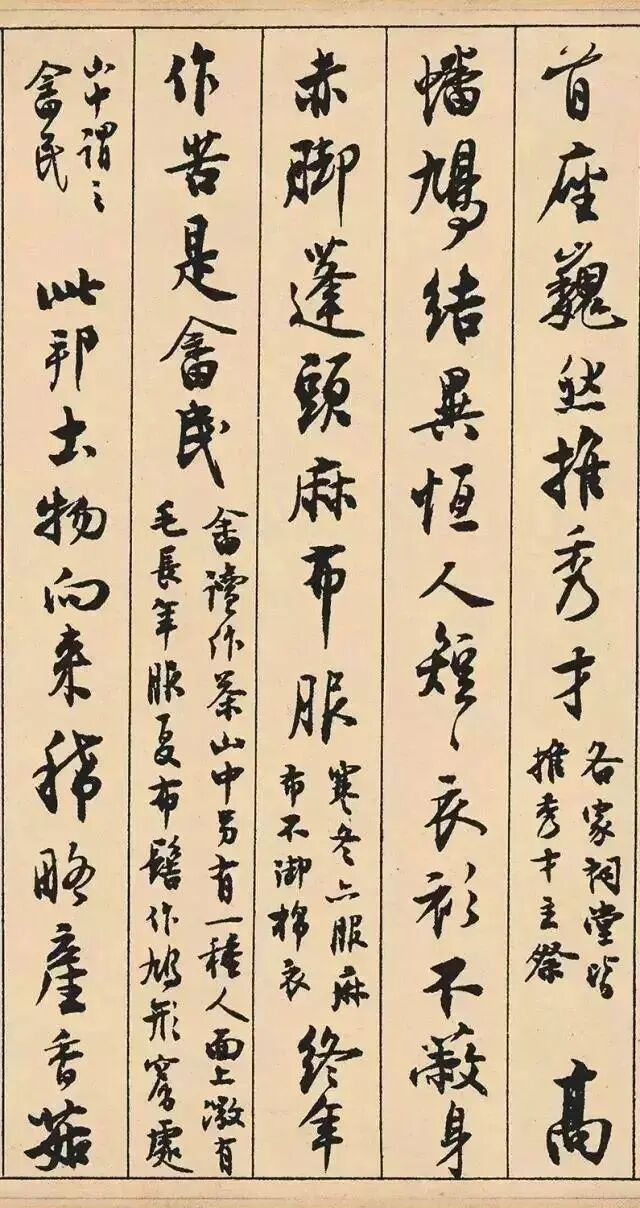 首座巍然推秀才 各家祠堂皆推秀才主祭 高
蟠鳩結異恒人短〻衣衫不蔽身
赤脚蓬頭麻布服 寒冬亦服麻布不御棉衣 終年
作苦是畬民 畬讀作茶山中另有一種人面上微有毛長年服夏布髻作鳩形窮處
山中謂之畬民 此邦土物向来稀略產香菇